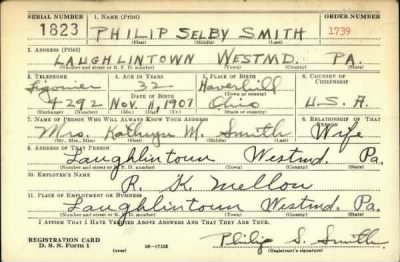 SERIAL NUMBER 1. NAME (Print) ORDER NUMBER
1823 PHILIP SELBY SMITH 1739
(First) (Middle) (Last)
2. ADDRESS (Print)
LAUGHLINTOWN WESTMD. PA.
(Number and street or R. F. D. number) (Town) (County) (State)
3. TELEPHONE 4. AGE IN YEARS 5. PLACE OF BIRTH 6. COUNTRY OF CITIZENSHIP
Ligonier 32 Haverhill
DATE OF BIRTH (Town or county)
4292 Nov. 11, 1907 Ohio U.S.A.
(Exchange) (Number) (Mo.) (Day) (Yr.) (State or country)
7. NAME OF PERSON WHO WILL ALWAYS KNOW YOUR ADDRESS 8. RELATIONSHIP OF THAT PERSON
Mrs. Kathryn M. Smith Wife
(Mr., Mrs., Miss) (First) (Middle) (Last)
9. ADDRESS OF THAT PERSON
Laughlintown Westmd. Pa.
(Number and street or R. F. D. number) (Town) (County) (State)
10. EMPLOYER'S NAME
R. K. Mellon
11. PLACE OF EMPLOYMENT OR BUSINESS
Laughlintown Westmd. Pa.
(Number and street or R. F. D. number) (Town) (County) (State)
I AFFIRM THAT I HAVE VERIFIED ABOVE ANSWERS AND THAT THEY ARE TRUE.
REGISTRATION CARD
D. S. S. Form 1 (over) 16-17105 Philip S. Smith
(Registrant's signature)